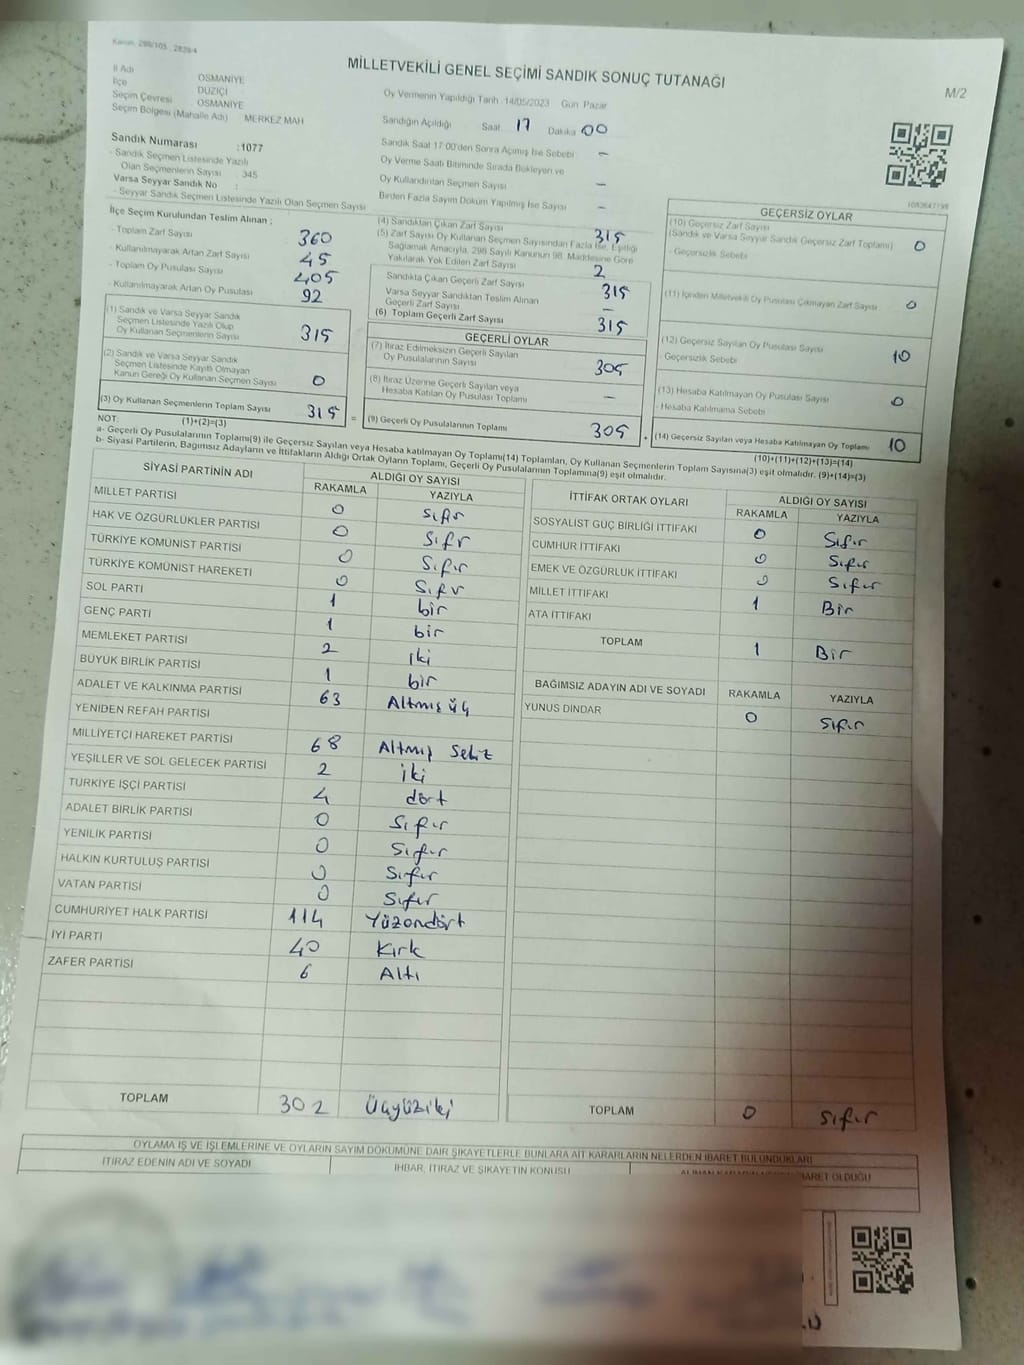 Kanun: 298/105 , 2839/4
MİLLETVEKİLİ GENEL SEÇİMİ SANDIK SONUÇ TUTANAĞI
M/2
İl Adı OSMANİYE
İlçe DÜZİÇİ
Seçim Çevresi OSMANİYE
Seçim Bölgesi (Mahalle Adı) MERKEZ MAH
Oy Vermenin Yapıldığı Tarih :14/05/2023 Gün Pazar
Sandığın Açıldığı Saat 17 Dakika 00
Sandık Numarası :1077
- Sandık Seçmen Listesinde Yazılı
Olan Seçmenlerin Sayısı : 345
Varsa Seyyar Sandık No :
- Seyyar Sandık Seçmen Listesinde Yazılı Olan Seçmen Sayısı
Sandık Saat 17:00'den Sonra Açımış İse Sebebi –
Oy Verme Saati Bitiminde Sırada Bekleyen ve
Oy Kullandırılan Seçmen Sayısı –
Birden Fazla Sayım Döküm Yapılmış İse Sayısı –
İlçe Seçim Kurulundan Teslim Alınan ;
- Toplam Zarf Sayısı 360
- Kullanılmayarak Artan Zarf Sayısı 45
- Toplam Oy Pusulası Sayısı 405
- Kullanılmayarak Artan Oy Pusulası 92
(1) Sandık ve Varsa Seyyar Sandık
Seçmen Listesinde Yazılı Olup
Oy Kullanan Seçmenlerin Sayısı 315
(2) Sandık ve Varsa Seyyar Sandık
Seçmen Listesinde Kayıtlı Olmayan
Kanun Gereği Oy Kullanan Seçmen Sayısı 0
(3) Oy Kullanan Seçmenlerin Toplam Sayısı 315
(1)+(2)=(3)
(4) Sandıktan Çıkan Zarf Sayısı 315
(5) Zarf Sayısı Oy Kullanan Seçmen Sayısından Fazla İse, Eşitliği
Sağlamak Amacıyla, 298 Sayılı Kanunun 98. Maddesine Göre
Yakılarak Yok Edilen Zarf Sayısı 2
Sandıkta Çıkan Geçerli Zarf Sayısı 315
Varsa Seyyar Sandıktan Teslim Alınan
Geçerli Zarf Sayısı –
(6) Toplam Geçerli Zarf Sayısı 315
GEÇERLİ OYLAR
(7) İtiraz Edilmeksizin Geçerli Sayılan
Oy Pusulalarının Sayısı 305
(8) İtiraz Üzerine Geçerli Sayılan veya
Hesaba Katılan Oy Pusulası Toplamı –
= (9) Geçerli Oy Pusulalarının Toplamı 305
GEÇERSİZ OYLAR
(10) Geçersiz Zarf Sayısı
(Sandık ve Varsa Seyyar Sandık Geçersiz Zarf Toplamı) 0
- Geçersizlik Sebebi
(11) İçinden Milletvekili Oy Pusulası Çıkmayan Zarf Sayısı 0
(12) Geçersiz Sayılan Oy Pusulası Sayısı 10
Geçersizlik Sebebi
(13) Hesaba Katılmayan Oy Pusulası Sayısı 0
- Hesaba Katılmama Sebebi
+ (14) Geçersiz Sayılan veya Hesaba Katılmayan Oy Toplamı 10
(10)+(11)+(12)+(13)=(14)
NOT:
a- Geçerli Oy Pusulalarının Toplamı(9) ile Geçersiz Sayılan veya Hesaba katılmayan Oy Toplamı(14) Toplamları, Oy Kullanan Seçmenlerin Toplam Sayısına(3) eşit olmalıdır. (9)+(14)=(3)
b- Siyasi Partilerin, Bağımsız Adayların ve İttifakların Aldığı Ortak Oyların Toplamı, Geçerli Oy Pusulalarının Toplamına(9) eşit olmalıdır.
SİYASİ PARTİNİN ADI ALDIĞI OY SAYISI
RAKAMLA YAZIYLA
MİLLET PARTİSİ 0 Sıfır
HAK VE ÖZGÜRLÜKLER PARTİSİ 0 Sıfır
TÜRKİYE KOMÜNİST PARTİSİ 0 Sıfır
TÜRKİYE KOMÜNİST HAREKETİ 0 Sıfır
SOL PARTİ 1 bir
GENÇ PARTİ 1 bir
MEMLEKET PARTİSİ 2 iki
BÜYÜK BİRLİK PARTİSİ 1 bir
ADALET VE KALKINMA PARTİSİ 63 Altmış üç
YENİDEN REFAH PARTİSİ
MİLLİYETÇİ HAREKET PARTİSİ 68 Altmış Sekiz
YEŞİLLER VE SOL GELECEK PARTİSİ 2 iki
TÜRKİYE İŞÇİ PARTİSİ 4 dört
ADALET BİRLİK PARTİSİ 0 Sıfır
YENİLİK PARTİSİ 0 Sıfır
HALKIN KURTULUŞ PARTİSİ 0 Sıfır
VATAN PARTİSİ 0 Sıfır
CUMHURİYET HALK PARTİSİ 114 Yüzondört
İYİ PARTİ 40 Kırk
ZAFER PARTİSİ 6 Altı
TOPLAM 302 Üçyüziki
İTTİFAK ORTAK OYLARI ALDIĞI OY SAYISI
RAKAMLA YAZIYLA
SOSYALİST GÜÇ BİRLİĞİ İTTİFAKI 0 Sıfır
CUMHUR İTTİFAKI 0 Sıfır
EMEK VE ÖZGÜRLÜK İTTİFAKI 0 Sıfır
MİLLET İTTİFAKI 1 Bir
ATA İTTİFAKI
TOPLAM 1 Bir
BAĞIMSIZ ADAYIN ADI VE SOYADI RAKAMLA YAZIYLA
YUNUS DİNDAR 0 Sıfır
TOPLAM 0 Sıfır
OYLAMA İŞ VE İŞLEMLERİNE VE OYLARIN SAYIM DÖKÜMÜNE DAİR ŞİKAYETLERLE BUNLARA AİT KARARLARIN NELERDEN İBARET BULUNDUKLARI
İTİRAZ EDENİN ADI VE SOYADI İHBAR, İTİRAZ VE ŞİKAYETİN KONUSU OLDUĞU